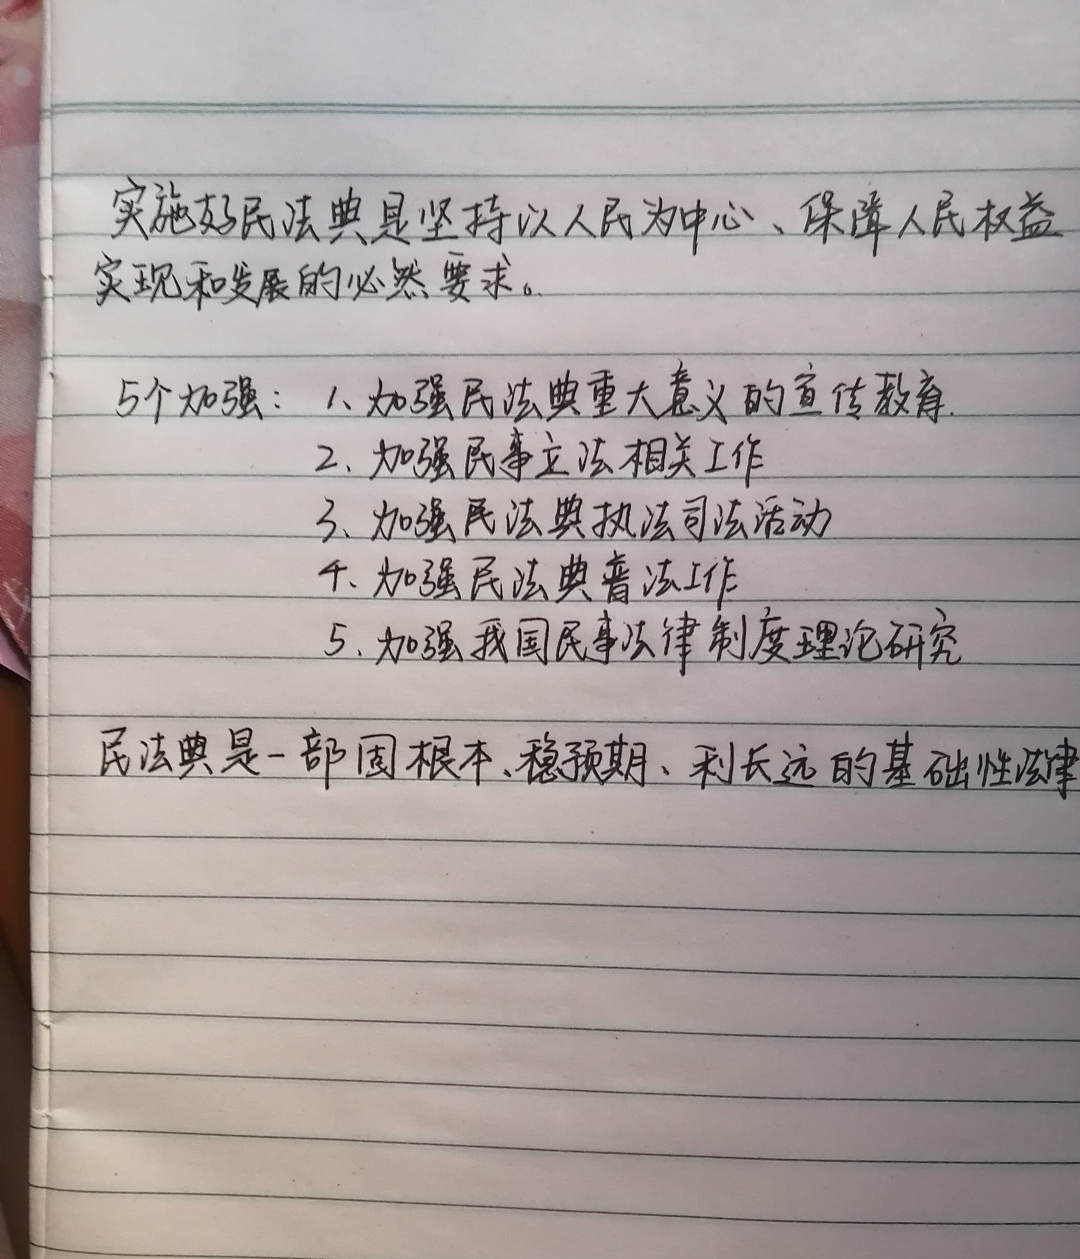 实施好民法典是坚持以人民为中心、保障人民权益
实现和发展的必然要求。
5个加强：1、加强民法典重大意义的宣传教育.
2、加强民事立法相关工作
3、加强民法典执法司法活动
4、加强民法典普法工作
5、加强我国民事法律制度理论研究
民法典是一部固根本、稳预期、利长远的基础性法律